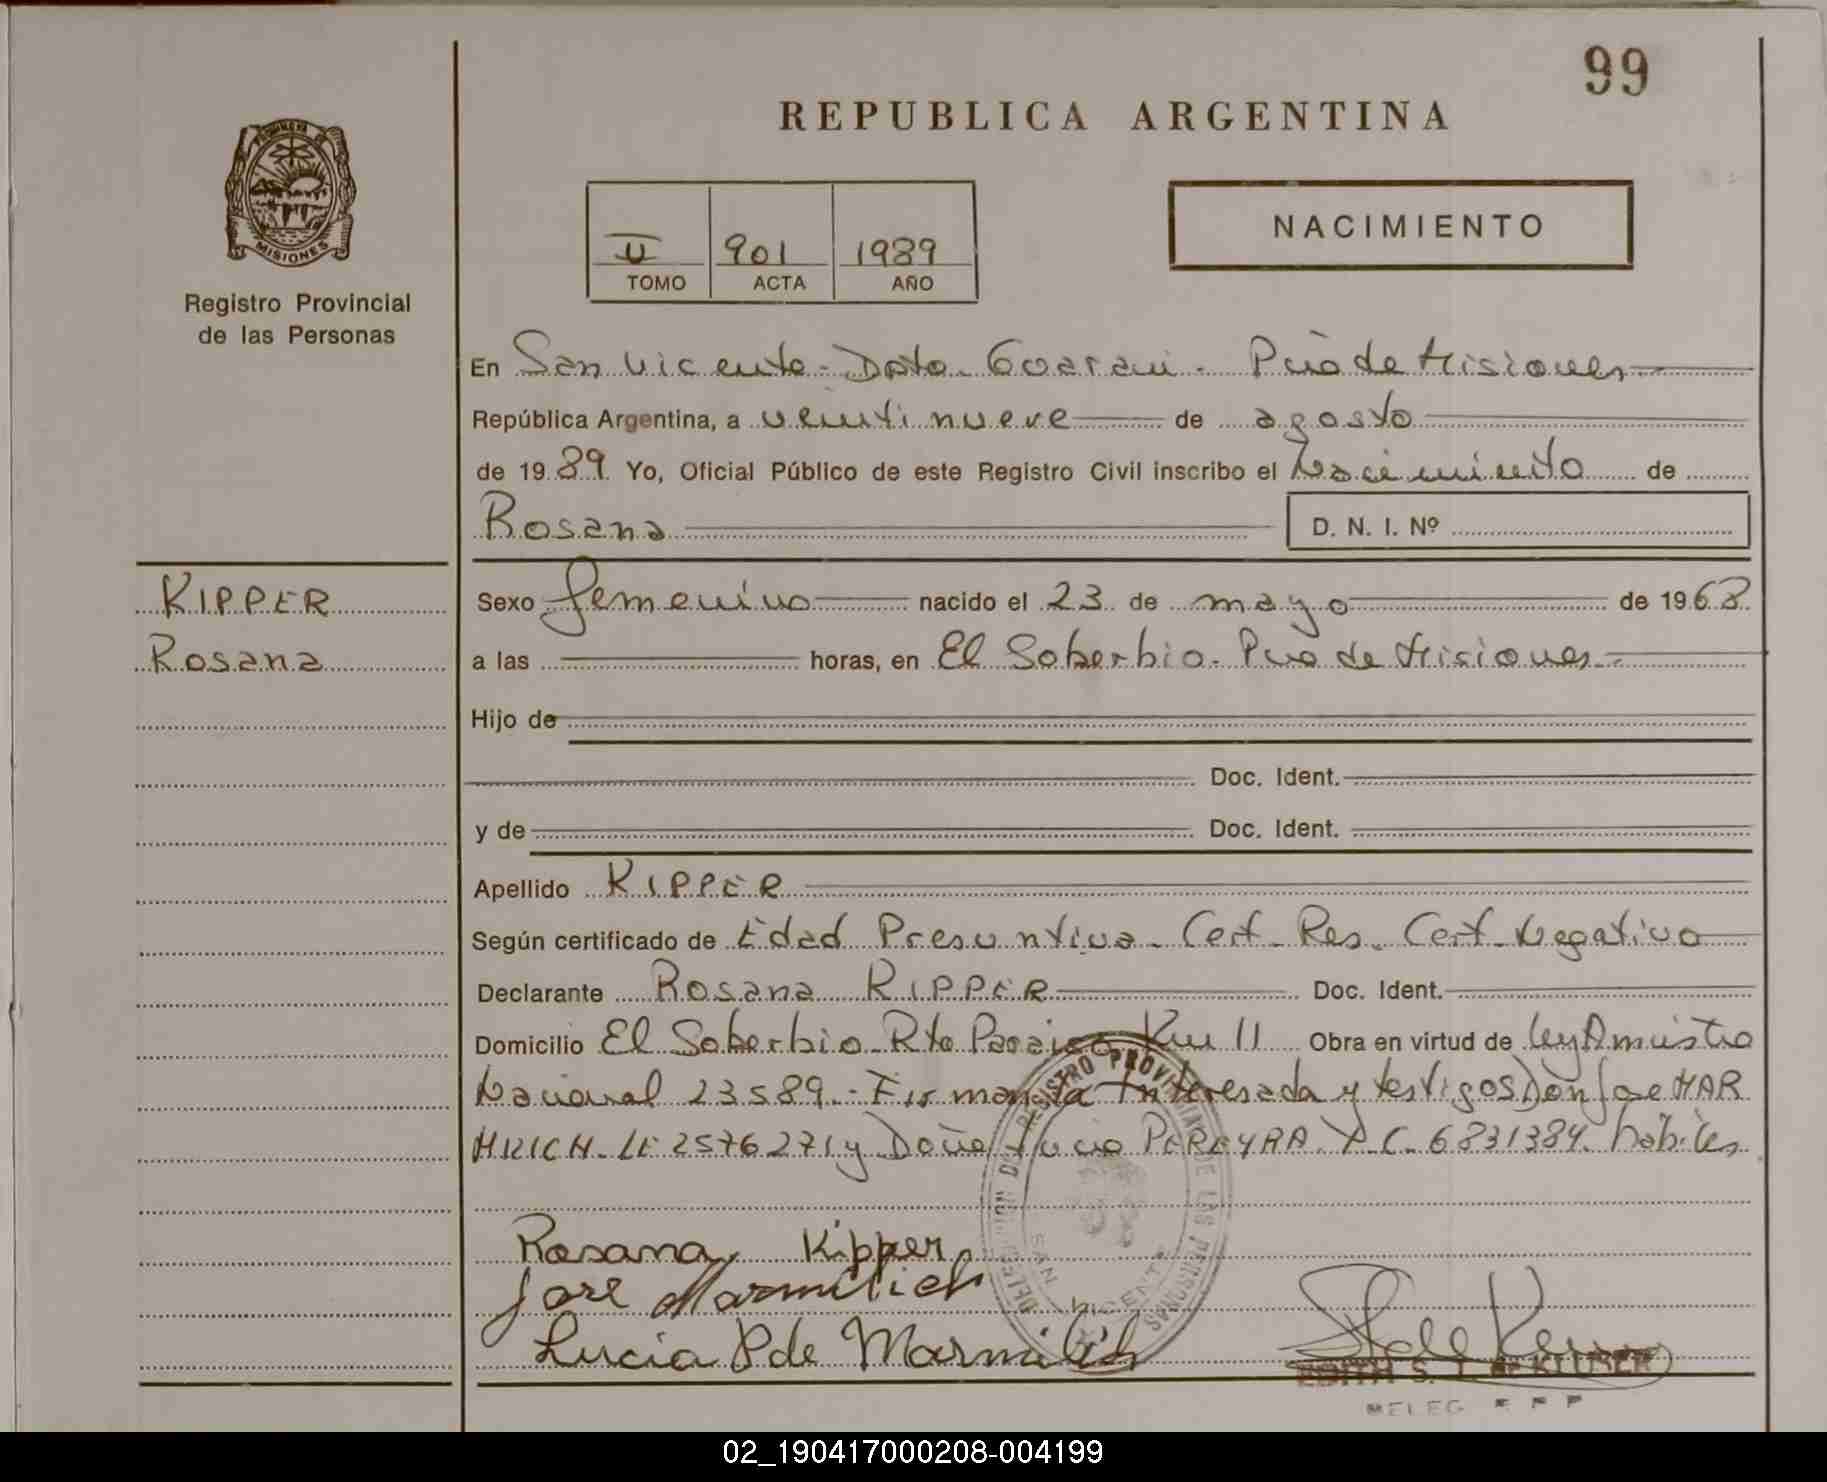 99
REPUBLICA ARGENTINA
PROVINCIA DE
MISIONES
Registro Provincial
de las Personas
II 901 1989
TOMO ACTA AÑO
NACIMIENTO
En San Vicente - Dpto. Guarani. Pcia de Misiones
República Argentina, a veintinueve de agosto
de 1989. Yo, Oficial Público de este Registro Civil inscribo el Nacimiento de
Rosana D. N. I. Nº
KIPPER
Rosana
Sexo femenino nacido el 23 de mayo de 1968
a las horas, en El Soberbio. Pcia de Misiones
Hijo de
Doc. Ident.
y de Doc. Ident.
Apellido KIPPER
Según certificado de Edad Presuntiva. Cert. Res. Cert. Negativo
Declarante Rosana KIPPER Doc. Ident.
Domicilio El Soberbio. Pto Paraiso Km 11 Obra en virtud de ley Amnistia
Nacional 23589.- Firman la Interesada y testigos Don Jose MAR
MILICH. LE 2576271 y Doña Lucia PEREYRA. L.C. 6831384. habiles
Rosana Kipper
Jose Marmilich
Lucia P de Marmilich
DELEGACION DEL REGISTRO PROVINCIAL DE LAS PERSONAS
SAN VICENTE
EDITH S. DE KLUBER
02_190417000208-004199